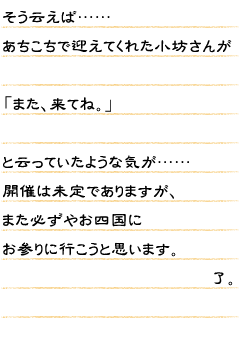 そう云えば……
あちこちで迎えてくれた小坊さんが
「また、来てね。」
と云っていたような気が……
開催は未定でありますが、
また必ずやお四国に
お参りに行こうと思います。
了。